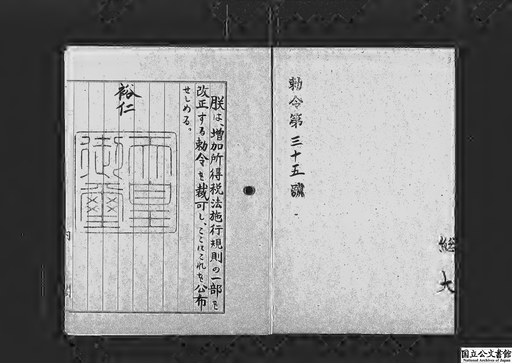 勅令第三十五號
経大
朕は、増加所得税法施行規則の一部を
改正する勅令を裁可し、ここにこれを公布
せしめる。
裕仁
天皇
御璽
国立公文書館
National Archives of Japan